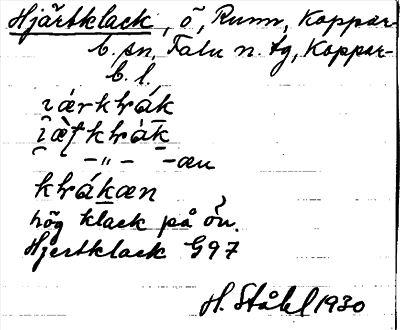 Hjärtklack, ö, Runn, Koppar-
b. sn, Falu n. tg, Koppar-
b. l.
ıárkhrák
ı̯æ̀ʈkhràk̅
– " – – -æn
khrákæn
hög klack på ön.
Hjertklack G97
H. Ståhl 1930